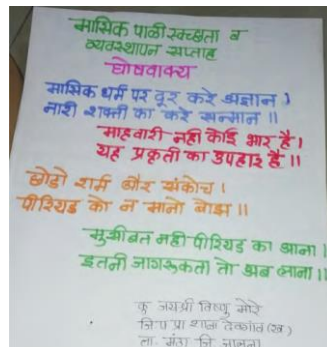 मासिक पाळी स्वच्छता व
व्यवस्थापन सप्ताह
घोषवाक्य
मासिक धर्म पर दूर करे अज्ञान ।
नारी शक्ती का करे सन्मान ॥
माहवारी नही कोई भार है।
यह प्रकृती का उपहार है ॥
छोडो शर्म और संकोच ।
पीरियड को न मानो बोझ ॥
मुसीबत नही पीरियड का आना ।
इतनी जागरूकता तो अब लाना ॥
कु जयश्री विष्णु मोरे
जि प प्रा शाळा देवगांव (ख)
ता. मंठा जि जालना